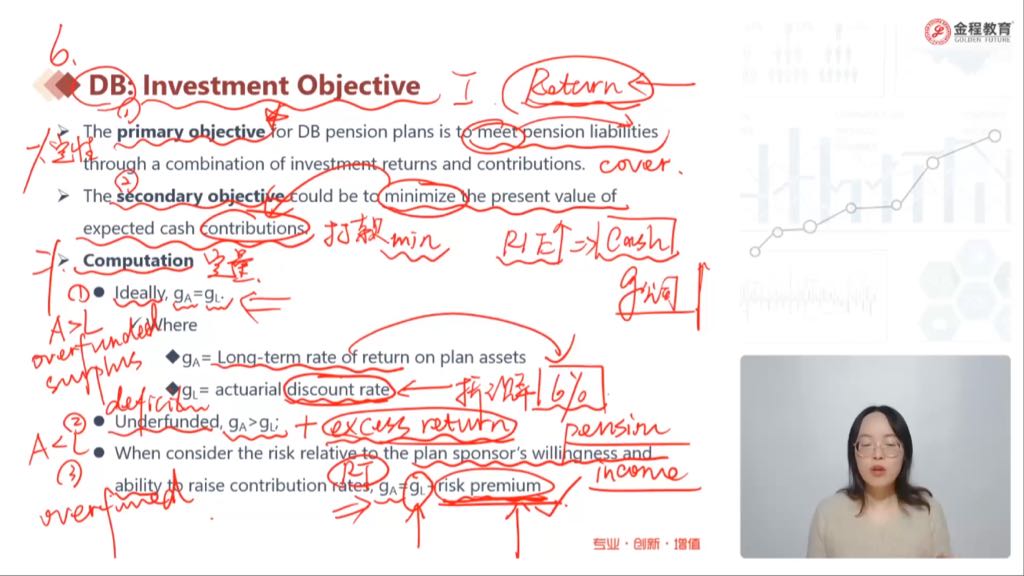 金程教育
GOLDEN FUTURE
6.
DB: Investment Objective
I Return
①
The primary objective for DB pension plans is to meet pension liabilities
定性
through a combination of investment returns and contributions. cover.
②
The secondary objective could be to minimize the present value of
expected cash contributions 打款 min RIE↑⇒Cash
Computation 定量 g公司
① Ideally, gA=gL.
A>L Where
overfunded
surplus
gA= Long-term rate of return on plan assets
gL= actuarial discount rate 6%
② Underfunded, gA>gL; + excess return pension
A<L
When consider the risk relative to the plan sponsor's willingness and
③ RT income
ability to raise contribution rates, gA=gL+risk premium
overfuned
专业·创新·增值